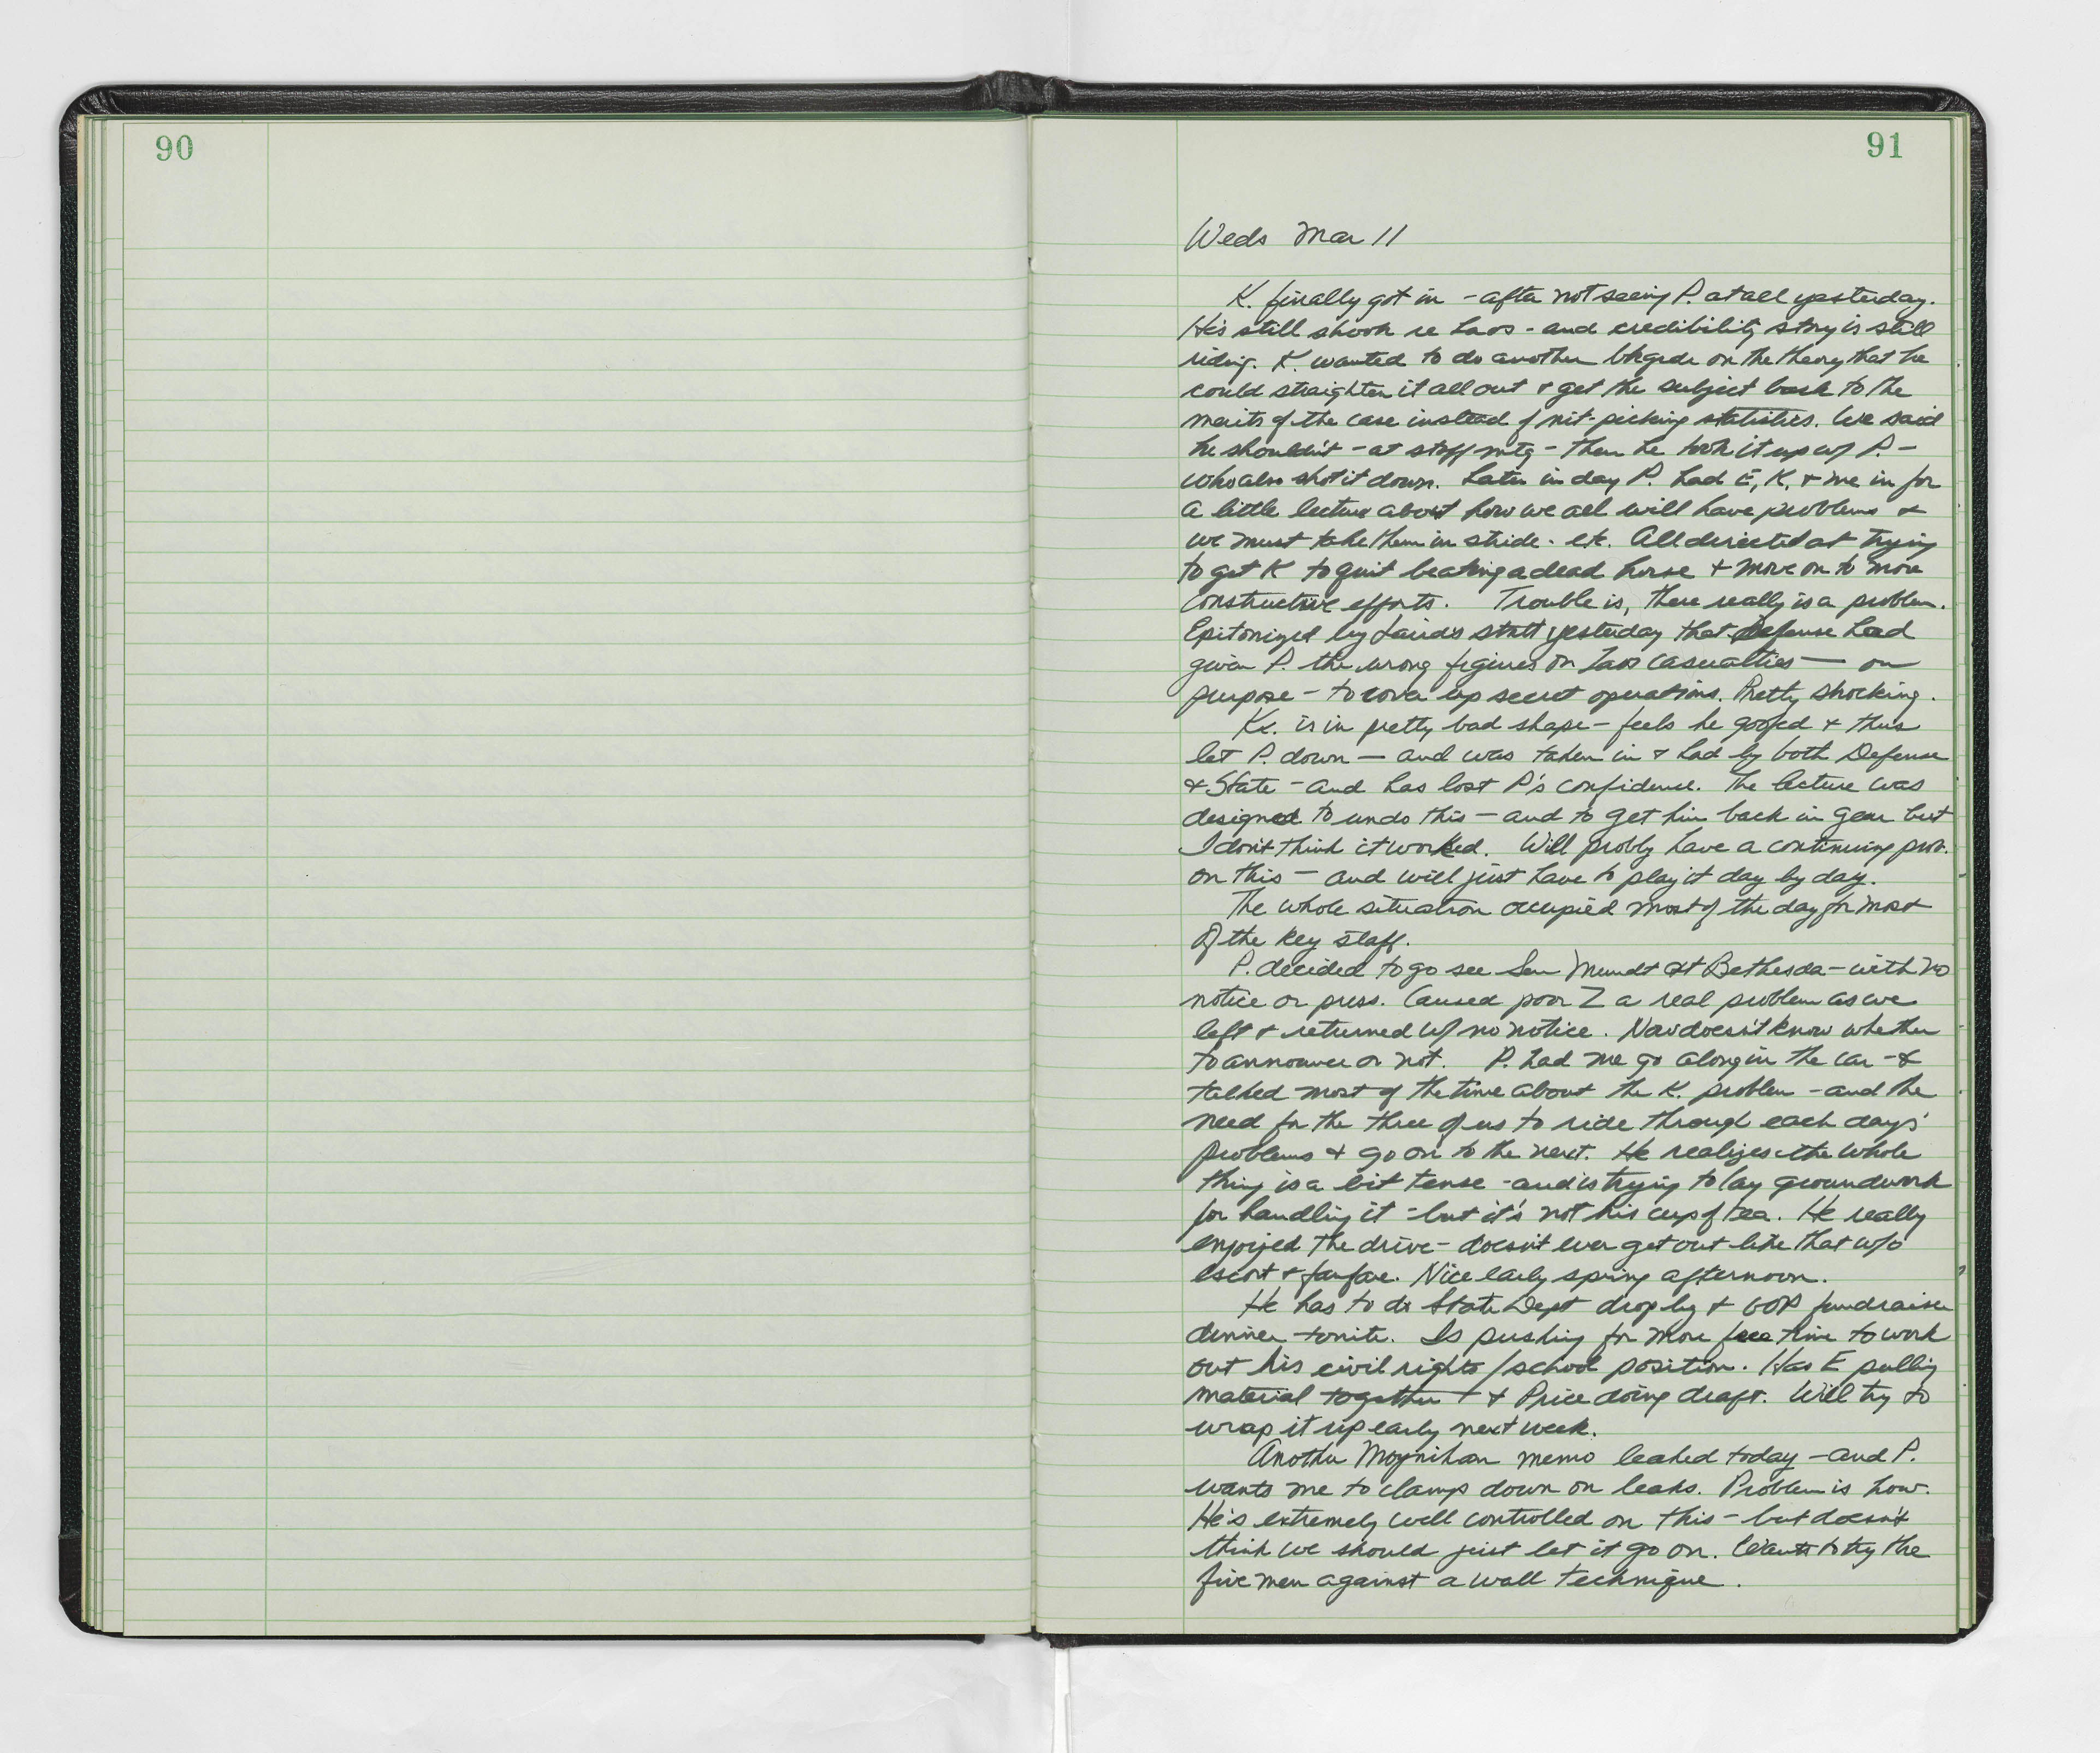 90
91
Weds Mar 11
K. finally got in - after not seeing P. at all yesterday.
He's still shook re Laos - and credibility story is still
riding. K. wanted to do another bkgrdr on the theory that he
could straighten it all out & get the subject back to the
merits of the case instead of nit-picking statistics. We said
he shouldn't - at staff mtg - then he took it up w/ P. -
who also shot it down. Later in day P. had E, K, & me in for
a little lecture about how we all will have problems &
we must take them in stride - etc. All directed at trying
to get K to quit beating a dead horse & move on to more
constructive efforts. Trouble is, there really is a problem.
Epitomized by Laird's statt yesterday that Defense had
given P. the wrong figures on Laos casualties — on
purpose - to cover up secret operations. Pretty shocking.
K. is in pretty bad shape - feels he goofed & thus
let P. down — and was taken in & had by both Defense
& State - and has lost P's confidence. The lecture was
designed to undo this — and to get him back in gear but
I don't think it worked. Will probly have a continuing prob.
on this — and will just have to play it day by day.
The whole situation occupied most of the day for most
of the key staff.
P. decided to go see Sen Mundt at Bethesda - with no
notice or press. Caused poor Z a real problem as we
left & returned w/ no notice. Now doesn't know whether
to announce or not. P. had me go along in the car - &
talked most of the time about the K. problem - and the
need for the three of us to ride through each days'
problems & go on to the next. He realizes the whole
thing is a bit tense - and is trying to lay groundwork
for handling it - but it's not his cup of tea. He really
enjoyed the drive - doesn't ever get out like that w/o
escort & fanfare. Nice early spring afternoon.
He has to do State Dept drop by & GOP fundraiser
dinner tonite. Is pushing for more free time to work
out his civil rights/school position. Has E pulling
material together & Price doing draft. Will try to
wrap it up early next week.
Another Moynihan memo leaked today - and P.
wants me to clamp down on leaks. Problem is how.
He's extremely well controlled on this - but doesn't
think we should just let it go on. Wants to try the
five men against a wall technique.